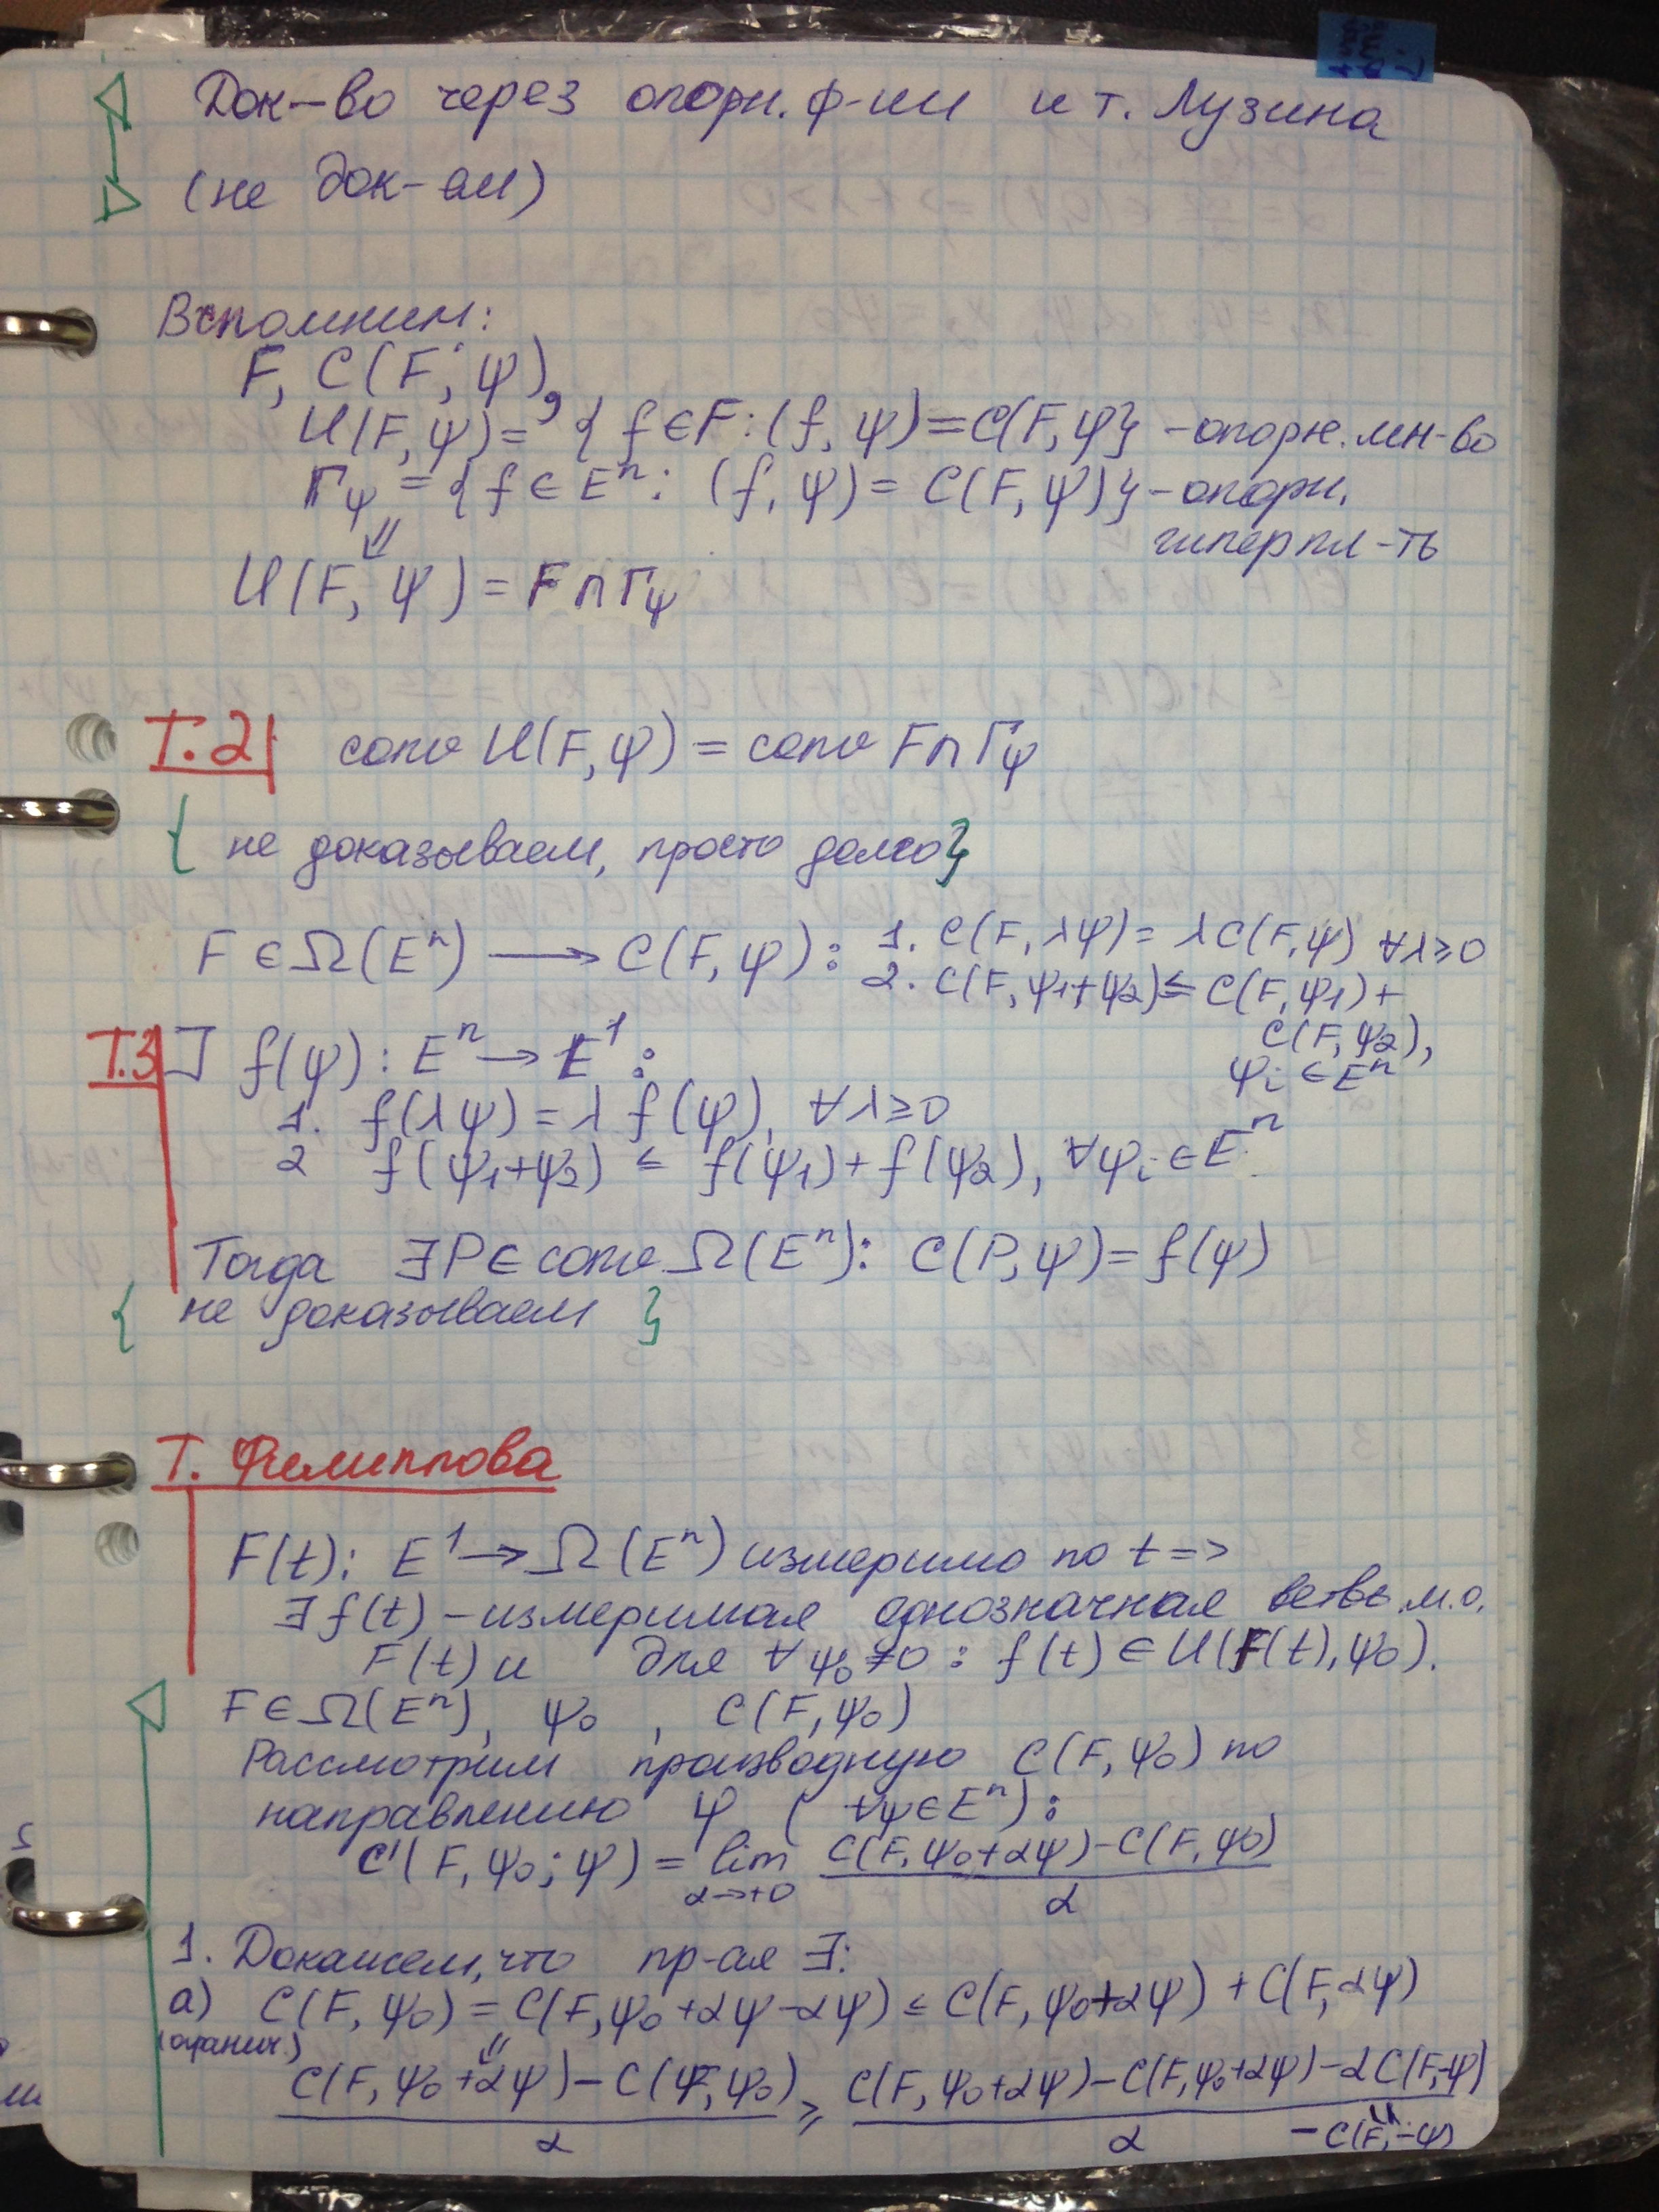 Док-во через опорн. ф-ии и т. Лузина
(не док-ли)
Вспомним:
F, C(F, ψ),
U(F, ψ) = { f ∈ F : (f, ψ) = C(F, ψ} - опорн. мн-во
Γψ = { f ∈ Eⁿ : (f, ψ) = C(F, ψ) } - опорн.
гиперпл-ть
⇓
U(F, ψ) = F ∩ Γψ
Т.2 conv U(F, ψ) = conv F ∩ Γψ
{ не доказываем, просто долго }
F ∈ Ω(Eⁿ) ⟶ C(F, ψ) : 1. C(F, λψ) = λC(F, ψ) ∀λ ≥ 0
2. C(F, ψ1+ψ2) ≤ C(F, ψ1) +
C(F, ψ2),
ψi ∈ Eⁿ
Т.3 ] f(ψ) : Eⁿ → E¹ :
1. f(λψ) = λ f(ψ), ∀λ ≥ 0
2 f(ψ1+ψ2) ≤ f(ψ1) + f(ψ2), ∀ψi ∈ Eⁿ
Тогда ∃P ∈ conv Ω(Eⁿ) : C(P, ψ) = f(ψ)
{ не доказываем }
Т. Филиппова
F(t) : E¹ → Ω(Eⁿ) измеримо по t =>
∃ f(t) - измеримая однозначная ветвь м.о.
F(t) и для ∀ψ₀ ≠ 0 : f(t) ∈ U(F(t), ψ₀).
F ∈ Ω(Eⁿ), ψ₀, C(F, ψ₀)
Рассмотрим производную C(F, ψ₀) по
направлению ψ (∀ψ ∈ Eⁿ) :
C'(F, ψ₀; ψ) = lim α→+0 (C(F, ψ₀+αψ) - C(F, ψ₀)) / α
1. Докажем, что пр-ая ∃:
а) C(F, ψ₀) = C(F, ψ₀ + αψ - αψ) ≤ C(F, ψ₀+αψ) + C(F, αψ)
(огранич.) ⇓
(C(F, ψ₀ + αψ) - C(F, ψ₀)) / α ≥ (C(F, ψ₀+αψ) - C(F, ψ₀+αψ) - αC(F, -ψ)) / α
- C(F, -ψ)